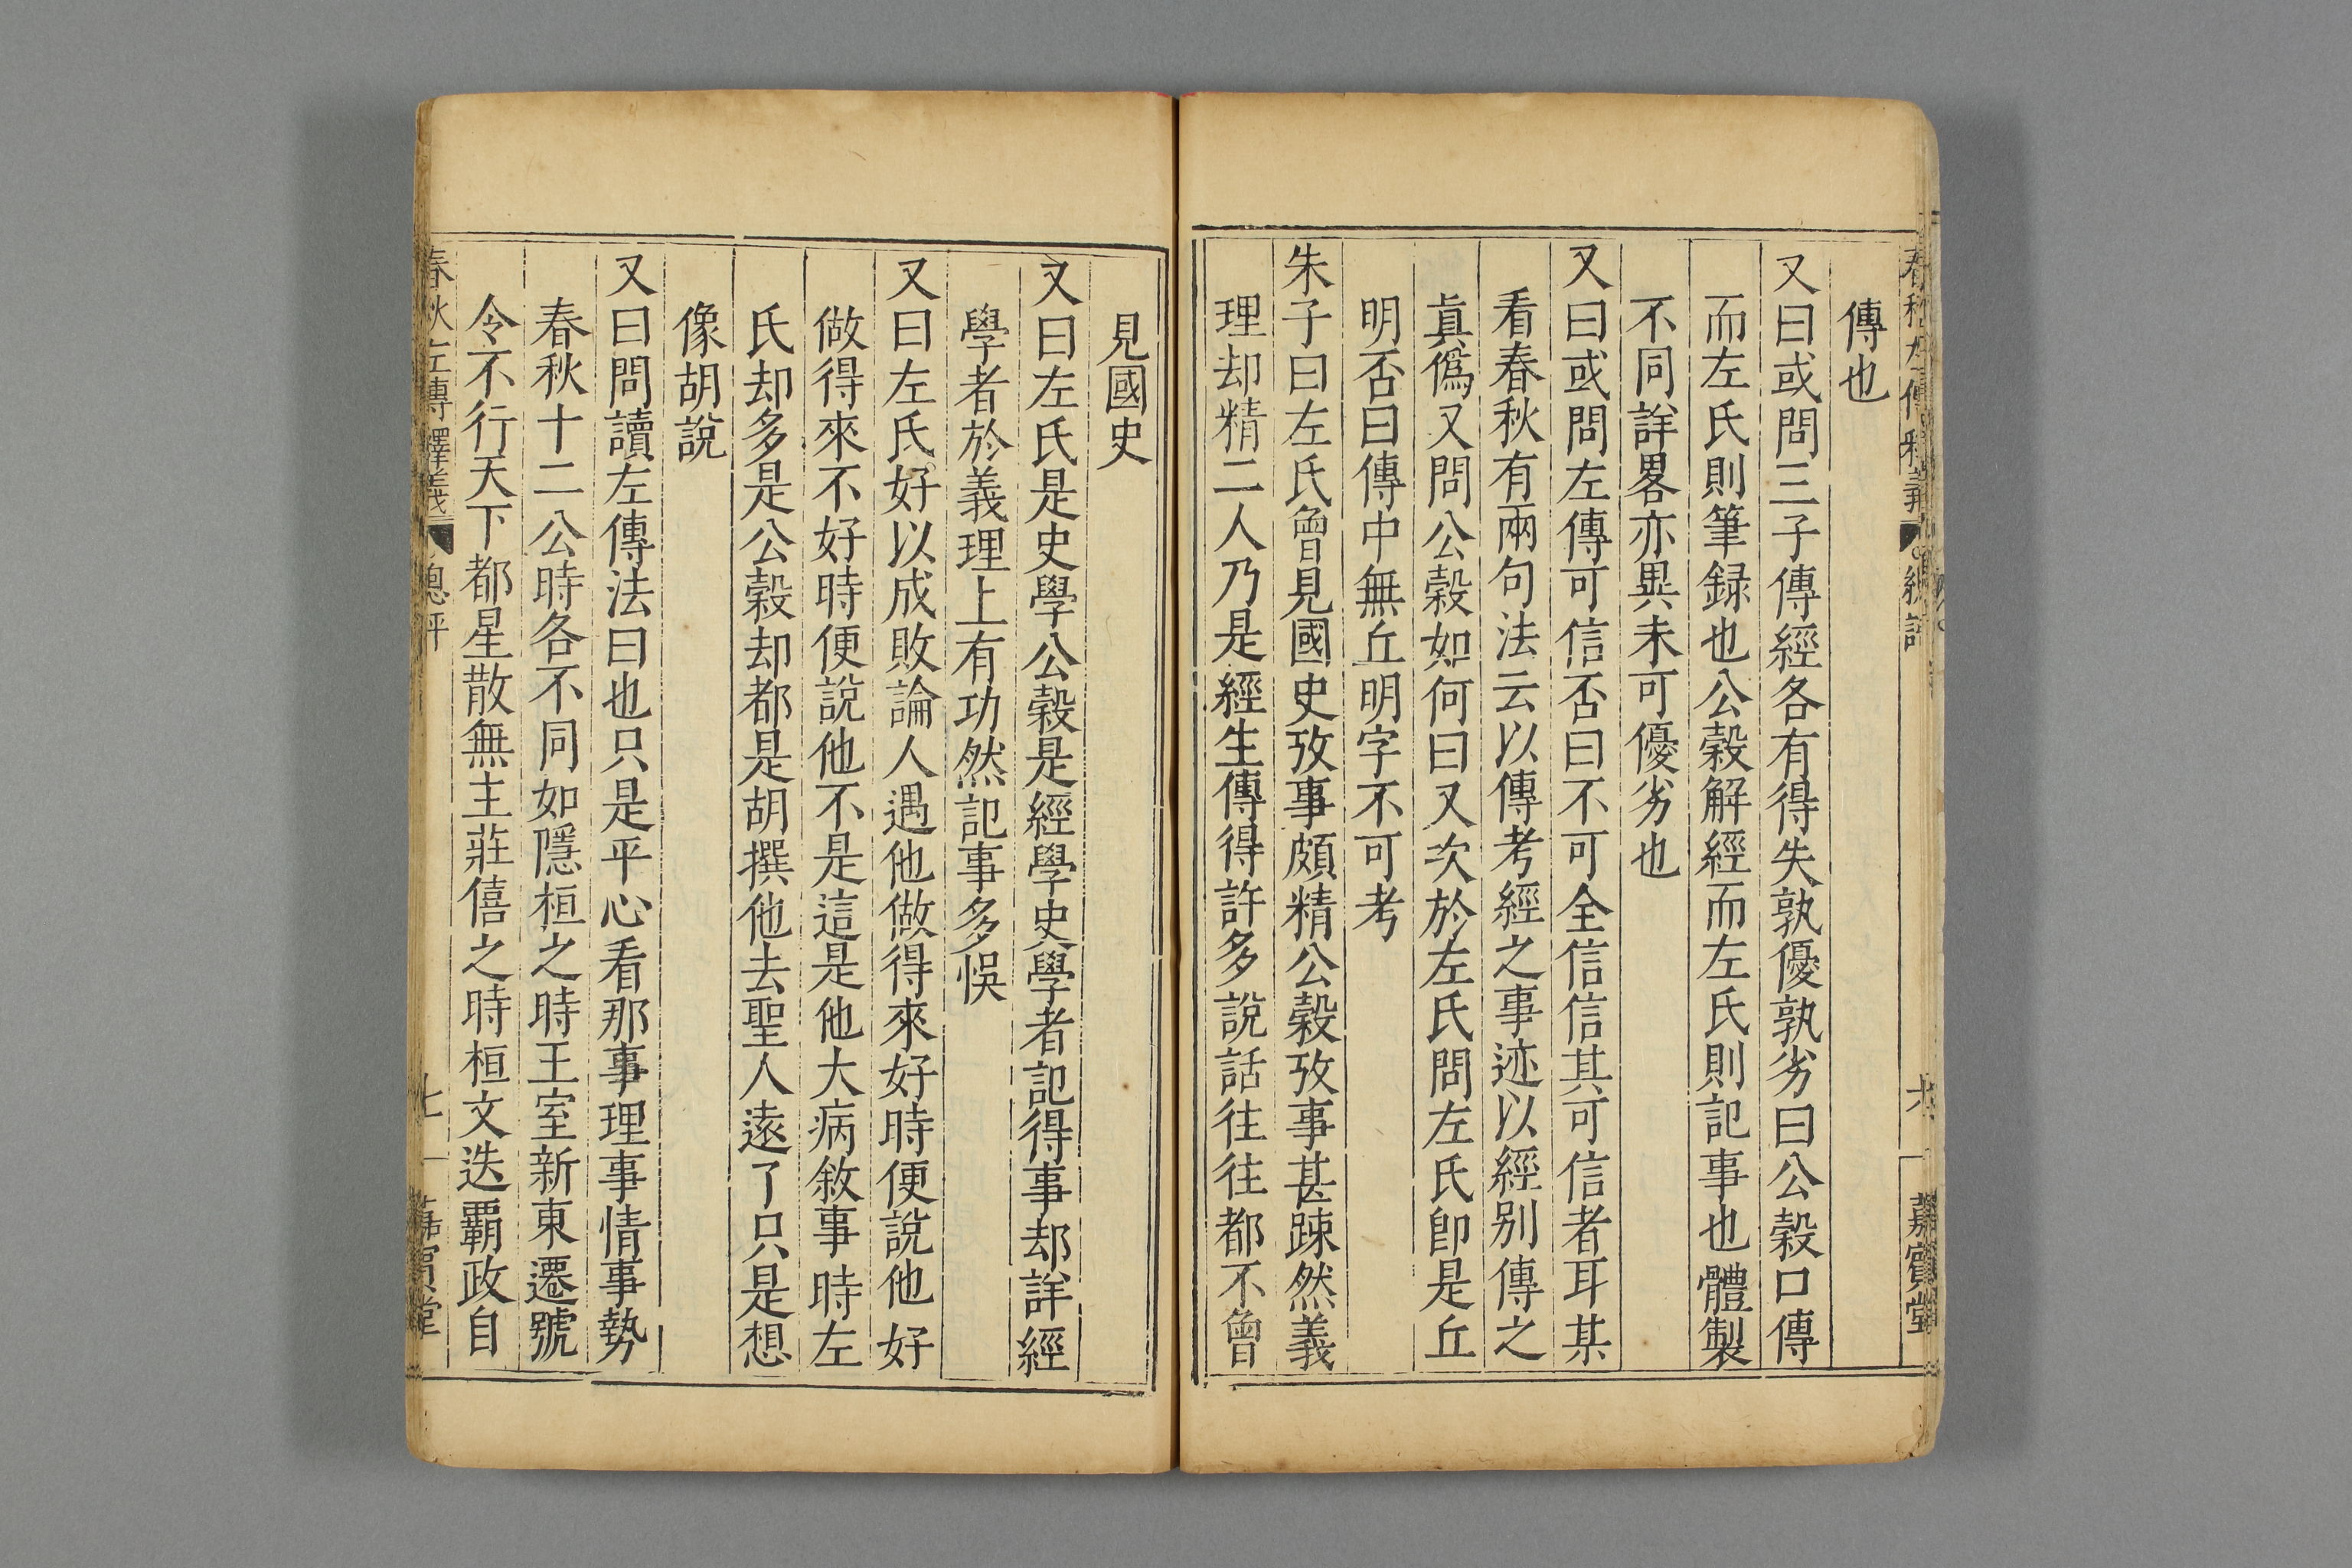 春秋左傳釋義
總評
六
嘉賓堂
傳也
又曰或問三子傳經各有得失孰優孰劣曰公穀口傳
而左氏則筆録也公穀解經而左氏則記事也體製
不同詳畧亦異未可優劣也
又曰或問左傳可信否曰不可全信信其可信者耳某
看春秋有兩句法云以傳考經之事迹以經别傳之
眞僞又問公穀如何曰又次於左氏問左氏卽是丘
明否曰傳中無丘明字不可考
朱子曰左氏曾見國史攷事頗精公穀攷事甚踈然義
理却精二人乃是經生傳得許多說話往往都不曾
見國史
又曰左氏是史學公穀是經學史學者記得事却詳經
學者於義理上有功然記事多悞
又曰左氏好以成敗論人遇他做得來好時便說他好
做得來不好時便說他不是這是他大病敘事時左
氏却多是公穀却都是胡撰他去聖人逺了只是想
像胡說
又曰問讀左傳法曰也只是平心看那事理事情事勢
春秋十二公時各不同如隱桓之時王室新東遷號
令不行天下都星散無主莊僖之時桓文迭覇政自
春秋左傳釋義
總評
七
嘉賓堂